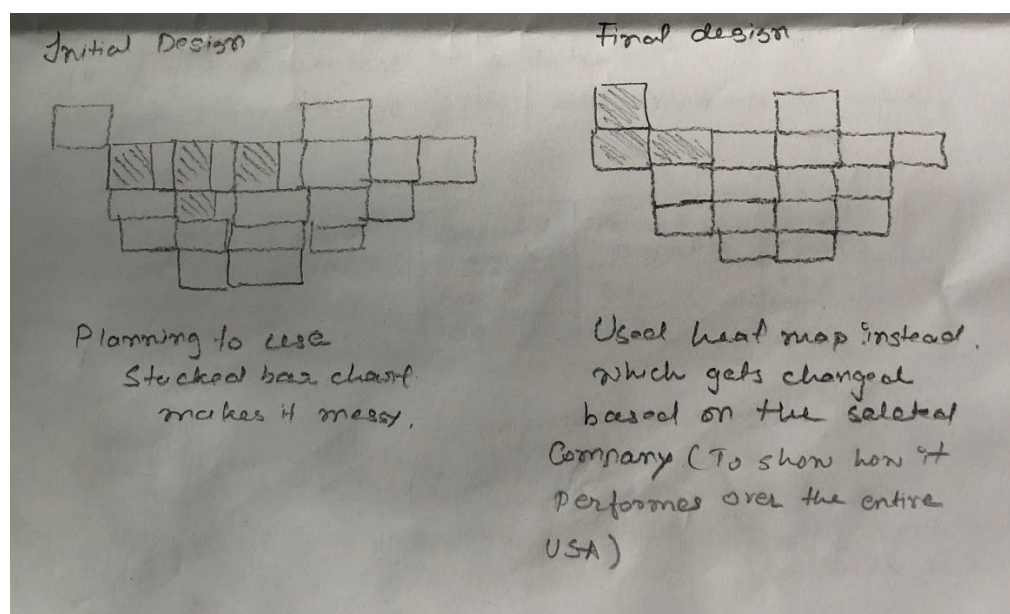 Initial Design
Planning to use
Stacked bar chart
makes it messy.
Final design
Used heat map instead.
which gets changed
based on the salcted
Company (To show how it
Performes over the entire
USA)